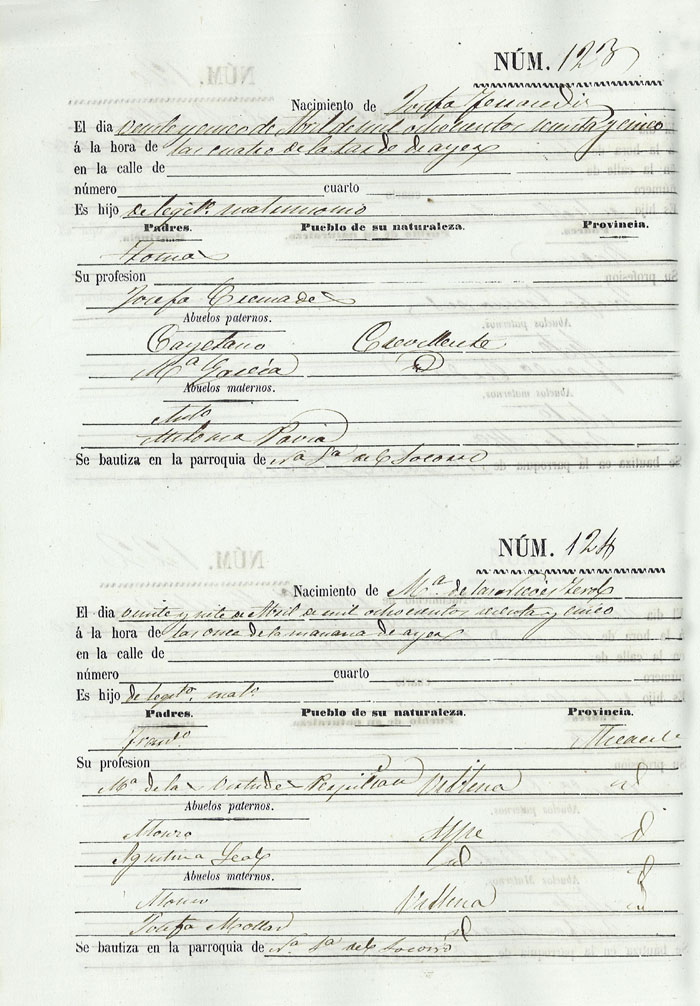 NÚM. 123
Nacimiento de Josefa Ferrandis
El dia veinte y cinco de Abril de mil ochocientos sesenta y cinco
á la hora de las cuatro de la tarde de ayer
en la calle de
número cuarto
Es hijo de legit.º matrimonio
Padres. Pueblo de su naturaleza. Provincia.
Tomas
Su profesion
Josefa Cremades
Abuelos paternos.
Cayetano Crevillente
M.ª García
Abuelos maternos.
Ant.º
Antonia Pavia
Se bautiza en la parroquia de N.ª S.ª del Socorro
NÚM. 124
Nacimiento de M.ª de las
El dia veinte y siete de Abril de mil ochocientos sesenta y cinco
á la hora de las once de la mañana de ayer
en la calle de
número cuarto
Es hijo de legit.º mat.º
Padres. Pueblo de su naturaleza. Provincia.
Fran.co Alicante
Su profesion
M.ª de las Virtudes Villena id
Abuelos paternos.
Aspe id
Agustina id
Abuelos maternos.
Villena id
Josefa Mollar id
Se bautiza en la parroquia de N.ª S.ª del Socorro